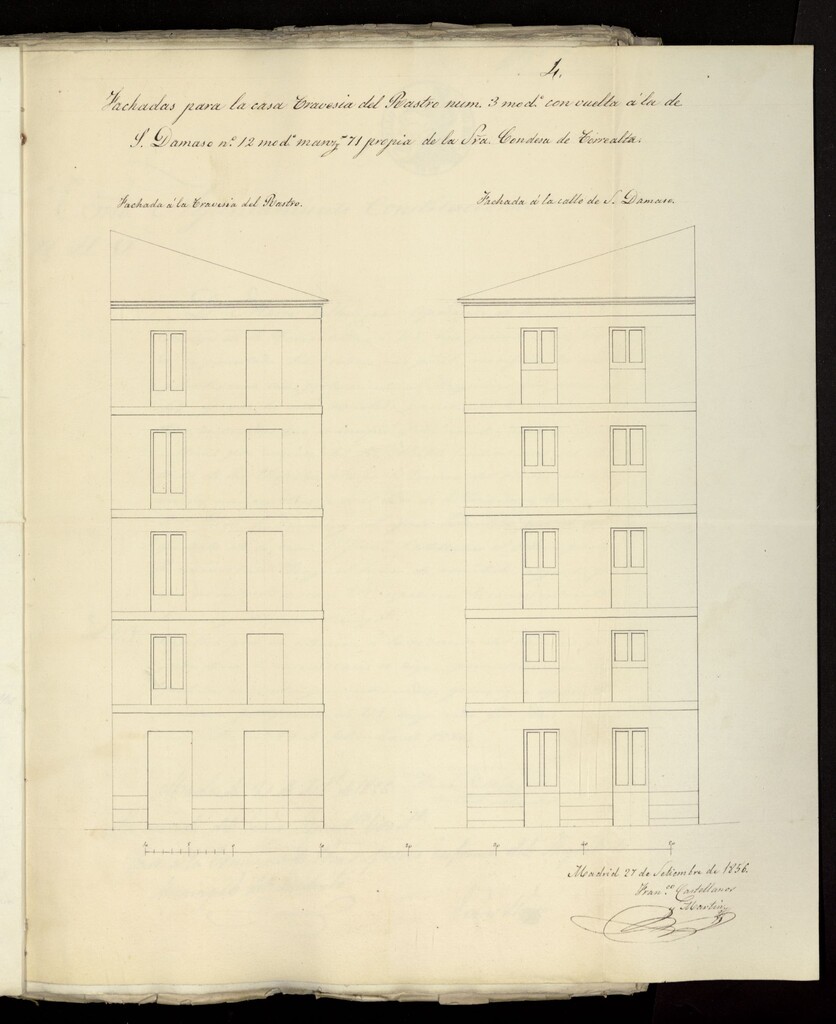 4.
Fachadas para la casa Travesia del Rastro num. 3 modº con vuelta á la de
S. Damaso nº 12 modº manzª 71 propia de la Sra. Condesa de Torrealta.
Fachada á la Travesia del Rastro.
Fachada á la calle de S. Damaso.
Madrid 27 de Setiembre de 1856.
Franco Castellanos
y Martin